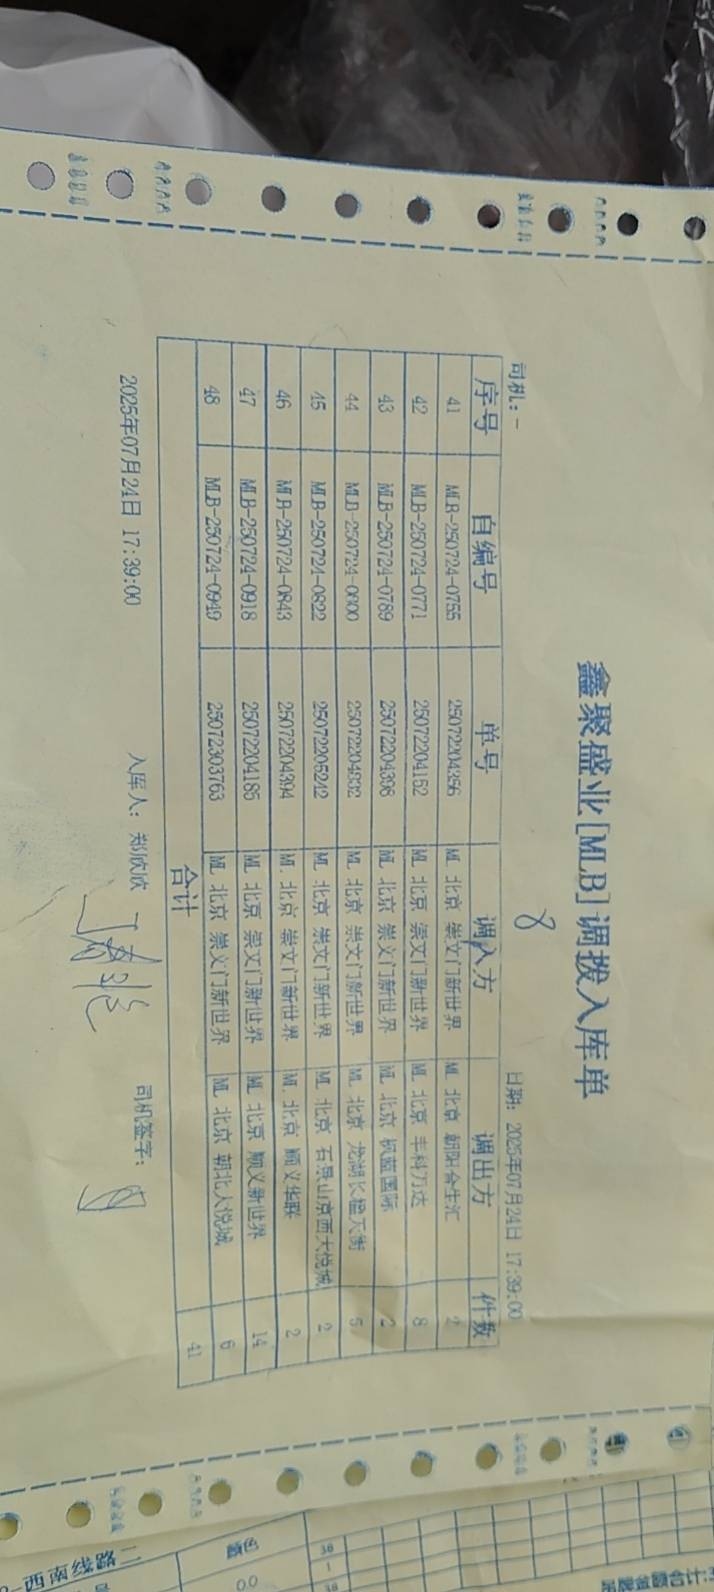 鑫聚盛业[MLB]调拨入库单
8
司机：- 日期：2025年07月24日 17:39:00
序号 自编号 单号 调入方 调出方 件数
41 MLB-250724-0755 25072204356 ML 北京 崇文门新世界 ML 北京 朝阳合生汇 2
42 MLB-250724-0771 25072204152 ML 北京 崇文门新世界 ML 北京 丰科万达 8
43 MLB-250724-0789 25072204398 ML 北京 崇文门新世界 ML 北京 枫蓝国际 2
44 MLB-250724-0800 25072204832 ML 北京 崇文门新世界 ML 北京 龙湖长楹天街 5
45 MLB-250724-0822 25072205242 ML 北京 崇文门新世界 ML 北京 石景山京西大悦城 2
46 MLB-250724-0843 25072204394 ML 北京 崇文门新世界 ML 北京 顺义华联 2
47 MLB-250724-0918 25072204185 ML 北京 崇文门新世界 ML 北京 顺义新世界 14
48 MLB-250724-0949 25072303763 ML 北京 崇文门新世界 ML 北京 朝北大悦城 6
合计 41
2025年07月24日 17:39:00 入库人：郑欣欣 司机签字：
西南线路二